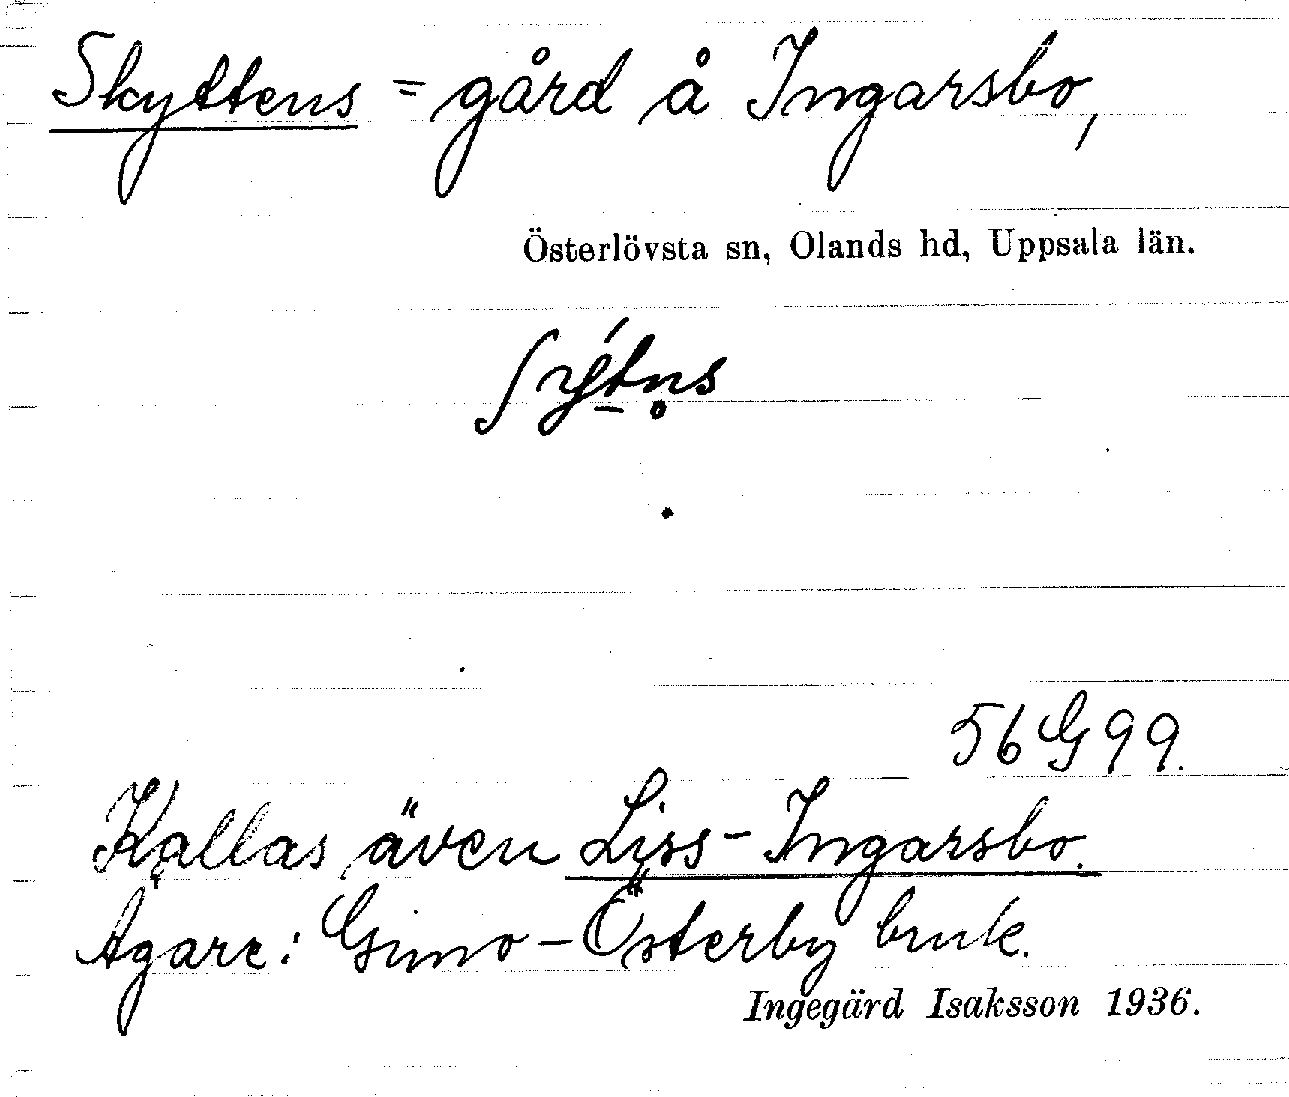 Skyttens = gård å Ingarsbo,
Österlövsta sn, Olands hd, Uppsala län.
56 G 99.
Kallas även Liss-Ingarsbo.
Ägare: Gimo-Österby bruk.
Ingegärd Isaksson 1936.